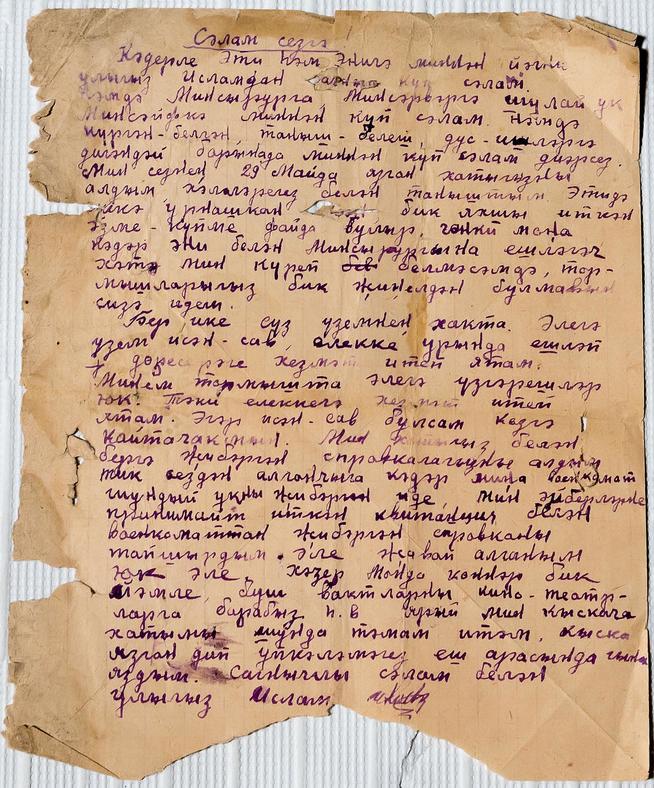 Сәлам сезгә
Кәдерле Әти һәм Әнигә миннән
улыгыз Исламдан күп сәлам.
Һәмдә Минсылурга, шулай ук
миннән күп сәлам. Һәмдә
күргән-белгән, таныш-белеш, дус-ишләргә
барында миннән күп сәлам диярсез.
Мин сезнең 29 Майда язган хатыгызны
алдым, хәлләрегез белән таныштым. Әтидә
эшкә урнашкан бик яхшы иткән
әзме-күпме файда булыр, чөнки моңа
кәдәр әни белән эшләгәч
хәтта мин күреп белмәсәмдә, тор-
мышларыгыз бик җиңелдән булмавын
сизә идем.
Бер ике суз уземнең хакта. Әлегә
узем исән-сав, элекке урында эшләп
дөресрәге хезмәт итеп ятам.
Минем тормышта әлегә үзгәрешләр
юк. Тәки элеккечә хезмәт итеп
ятам. Әгәр исән-сав булсам көзгә
кайтачакмын. Мин белән
бергә җибәргән справкалагызны алдым
тик сездән алганчыга кәдәр миңа военкомат
шундый укны җибәргән иде, мин
принимайт иткән квитанция белән
военкоматтан җибәргән справканы
тапшырдым. Әле җавап алганым
юк әле. Хәзер монда көннәр бик
ямле, буш вактларны кино-театр-
ларга барабыз н.в ярый мин кыскача
хатымны шунда тәмам итәм, кыска
язган дип үпкәләмәгез эш арасында гына
яздым. Сагынычлы сәлам белән
улыгыз Ислам